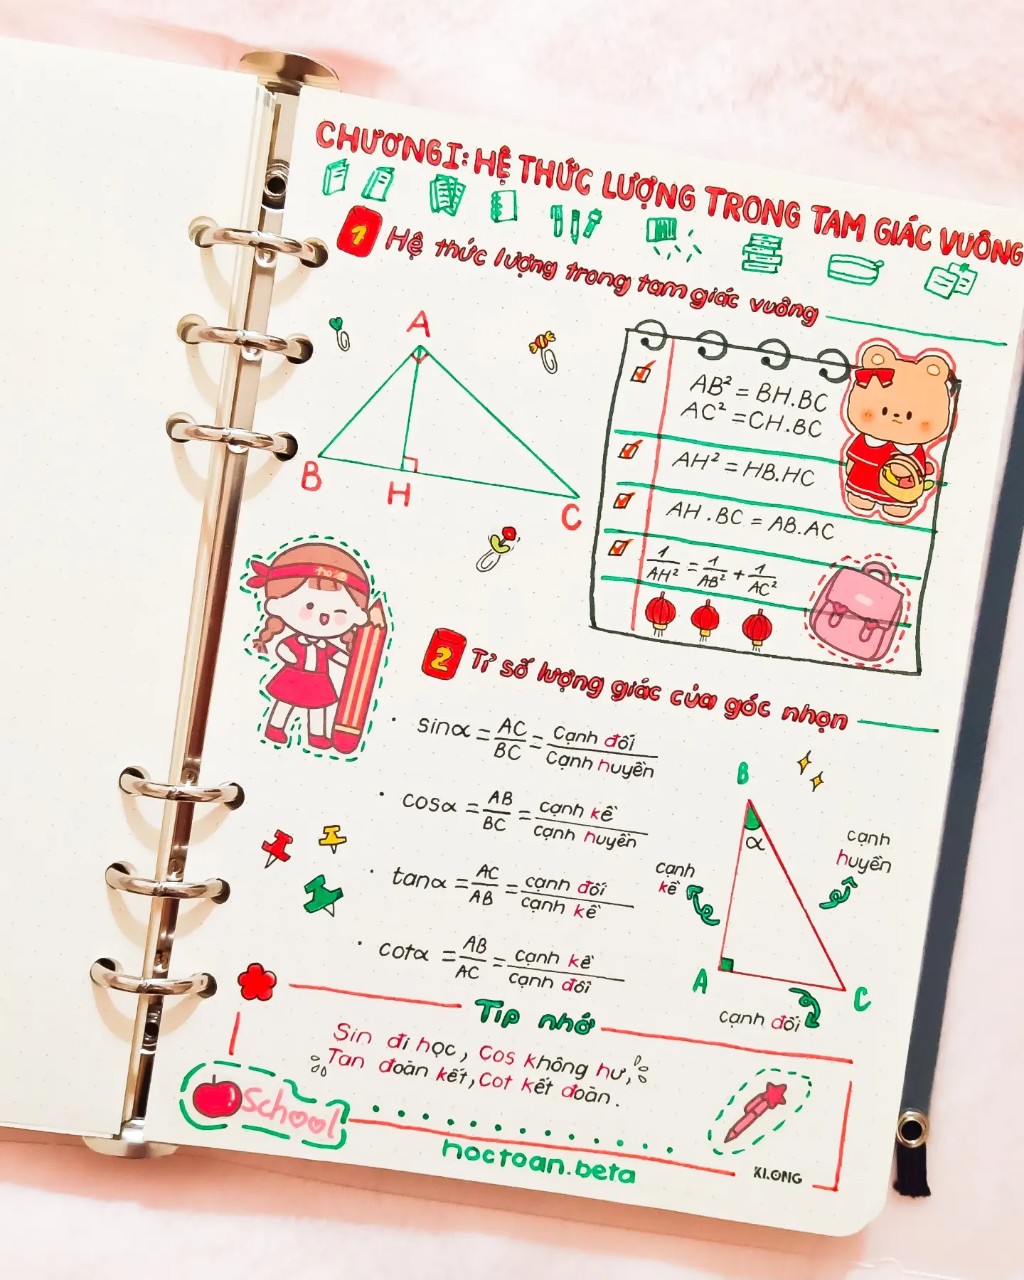 CHƯƠNG I: HỆ THỨC LƯỢNG TRONG TAM GIÁC VUÔNG
1 Hệ thức lượng trong tam giác vuông
A
B
H
C
AB² = BH.BC
AC² = CH.BC
AH² = HB.HC
AH.BC = AB.AC
1/AH² = 1/AB² + 1/AC²
2 Tỉ số lượng giác của góc nhọn
sinα = AC/BC = cạnh đối/cạnh huyền
cosα = AB/BC = cạnh kề/cạnh huyền
tanα = AC/AB = cạnh đối/cạnh kề
cotα = AB/AC = cạnh kề/cạnh đối
B
α
cạnh kề
cạnh huyền
A
C
cạnh đối
Tip nhớ
Sin đi học, Cos không hư,
Tan đoàn kết, Cot kết đoàn.
School
hoctoan.beta
KLONG